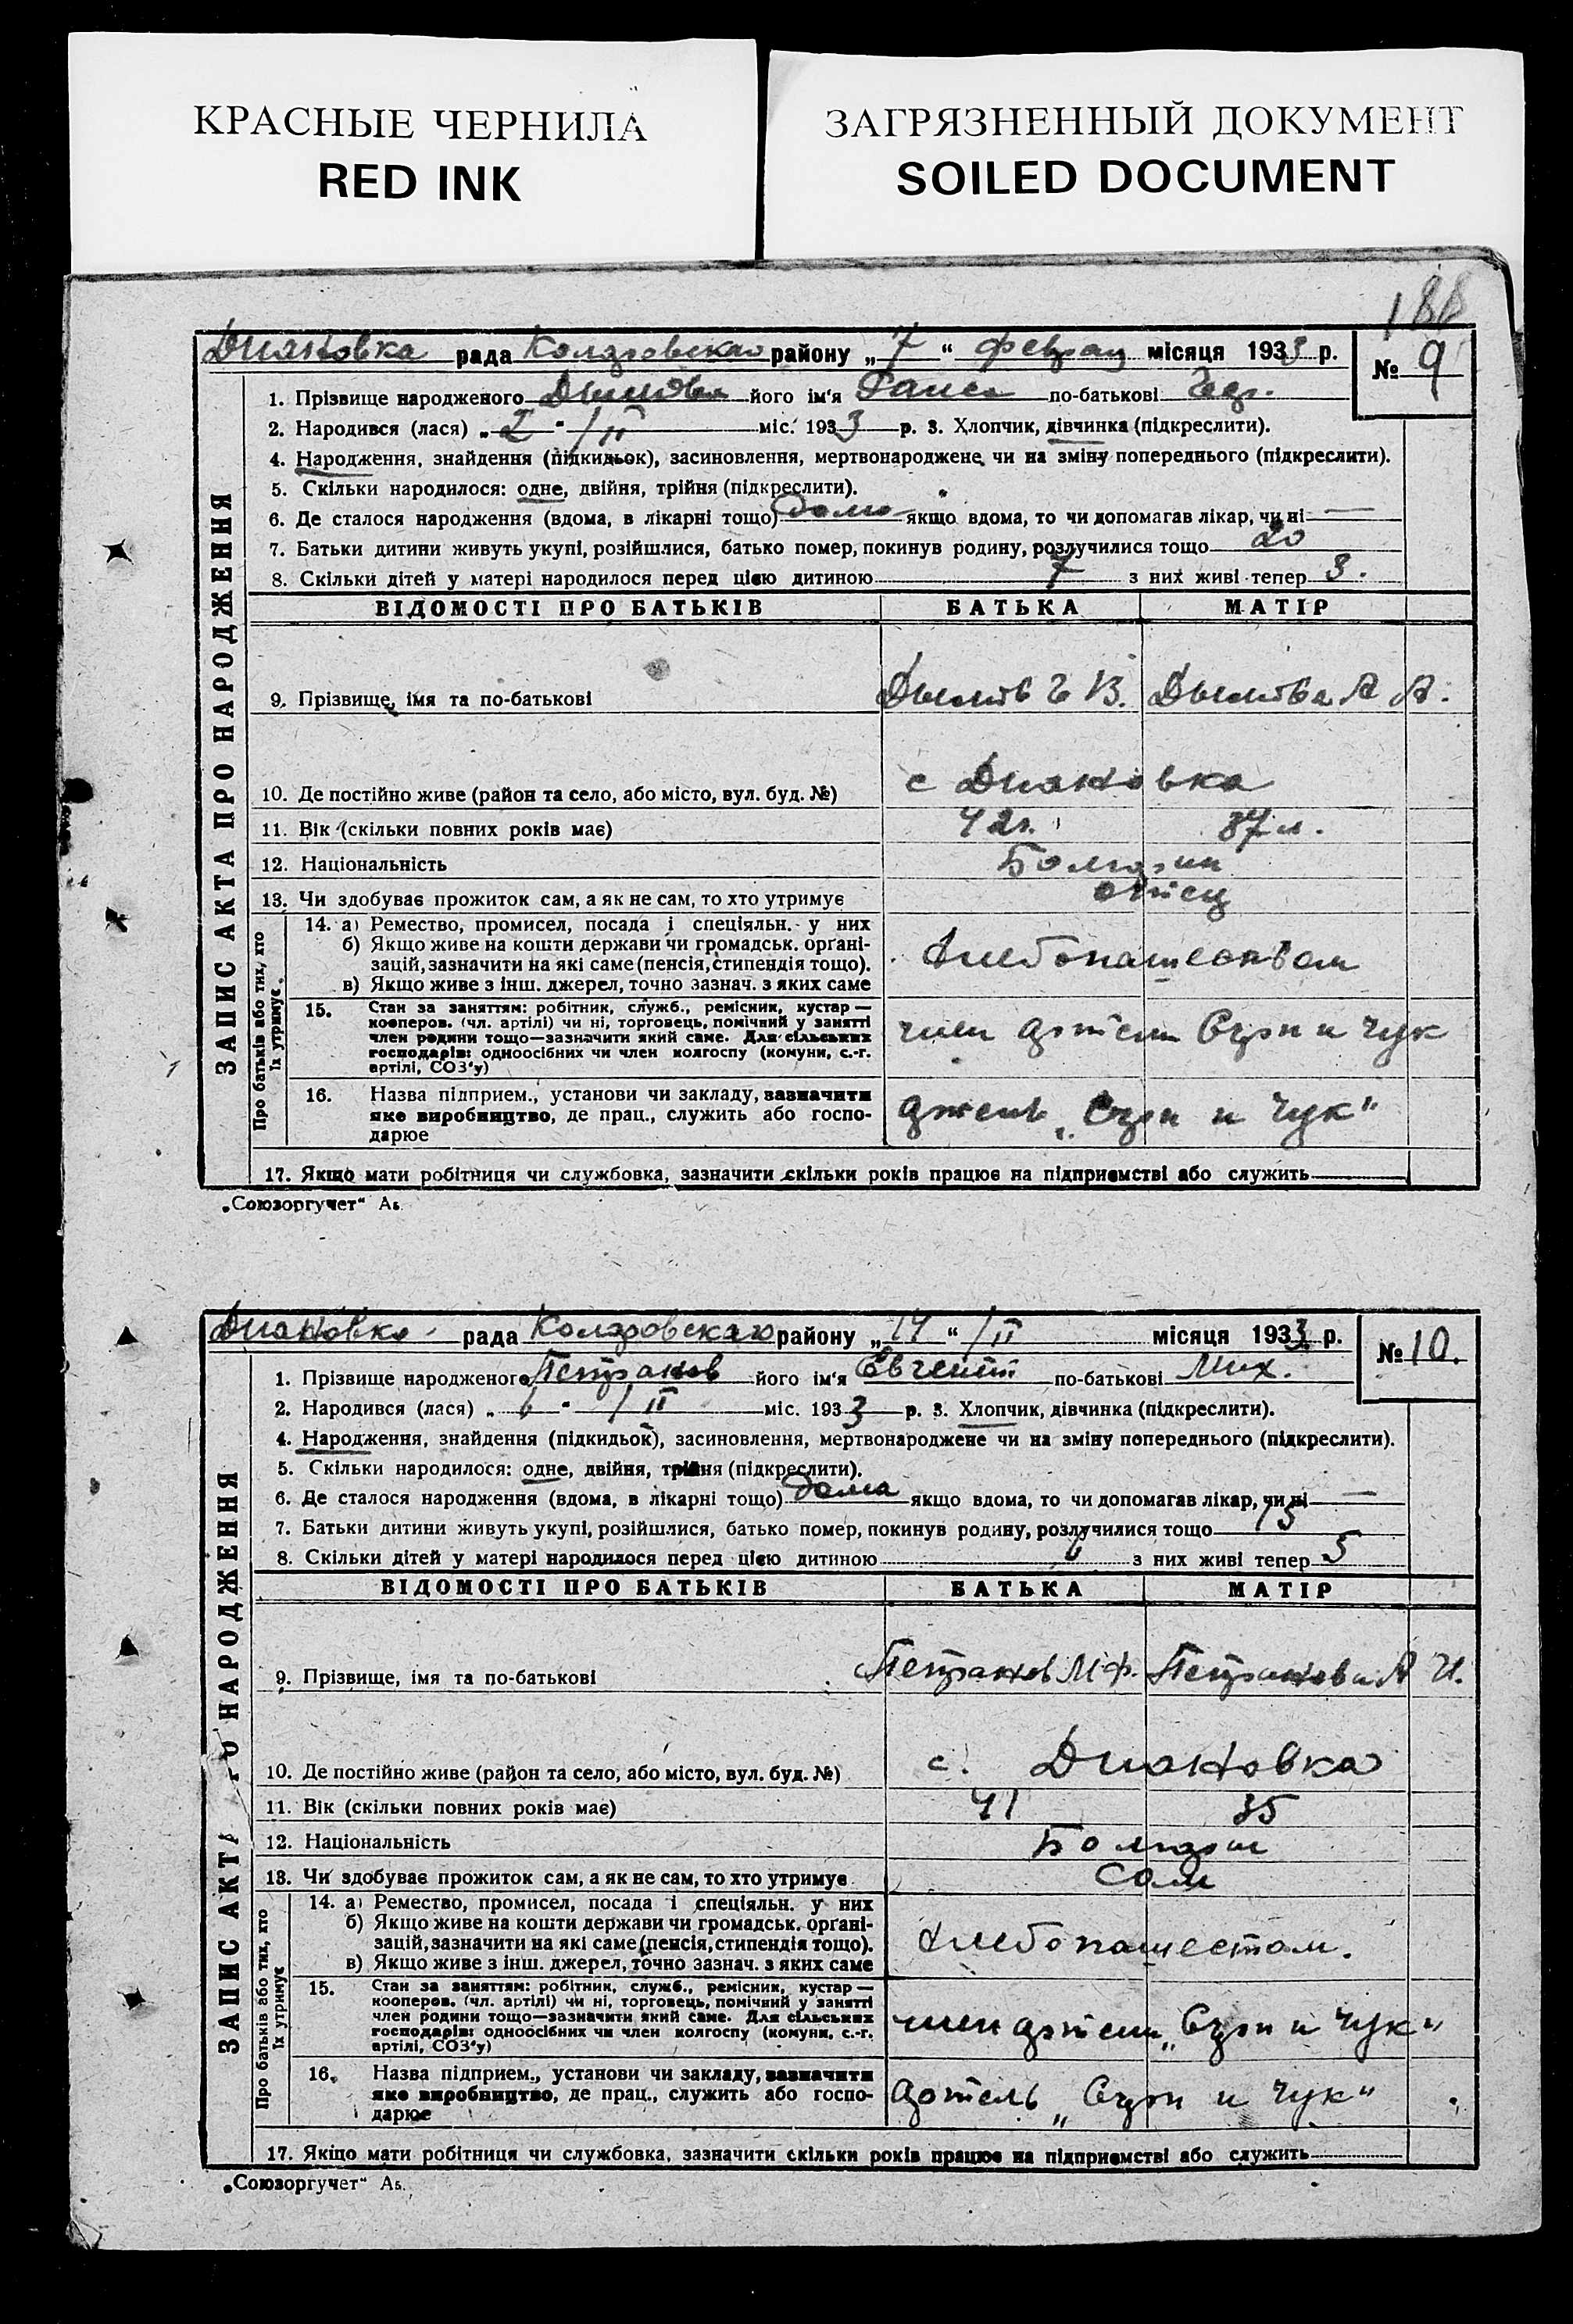 КРАСНЫЕ ЧЕРНИЛА
RED INK
ЗАГРЯЗНЕННЫЙ ДОКУМЕНТ
SOILED DOCUMENT
188
Диановка рада Коларовскаго району „7“ феврал місяця 1933 р.
№ 9
1. Прізвище народженого його ім'я Раиса по-батькові
2. Народився (лася) „ I “ / II міс. 1933 р. 3. Хлопчик, дівчинка (підкреслити).
4. Народження, знайдення (підкидьок), засиновлення, мертвонароджене чи на зміну попереднього (підкреслити).
5. Скільки народилося: одне, двійня, трійня (підкреслити).
6. Де сталося народження (вдома, в лікарні тощо) дома якщо вдома, то чи допомагав лікар, чи ні —
7. Батьки дитини живуть укупі, розійшлися, батько помер, покинув родину, розлучилися тощо 20
8. Скільки дітей у матері народилося перед цією дитиною 7 з них живі тепер 3.
ВІДОМОСТІ ПРО БАТЬКІВ БАТЬКА МАТІР
9. Прізвище, імя та по-батькові
10. Де постійно живе (район та село, або місто, вул. буд. №) с Диановка
11. Вік (скільки повних років має) 42г. 37л.
12. Національність Болгарин
13. Чи здобуває прожиток сам, а як не сам, то хто утримує отец
14. а) Ремество, промисел, посада і спеціяльн. у них
б) Якщо живе на кошти держави чи громадськ. орґані-
зацій, зазначити на які саме (пенсія, стипендія тощо).
в) Якщо живе з інш. джерел, точно зазнач. з яких саме
Хлебопашеством
15. Стан за заняттям: робітник, служб., ремісник, кустар —
кооперов. (чл. артілі) чи ні, торговець, помічний у занятті
член родини тощо—зазначити який саме. Для сільських
господарів: одноосібних чи член колгоспу (комуни, с.-г.
артілі, СОЗ'у)
член артели Серп и Чук
16. Назва підприєм., установи чи закладу, зазначити
яке виробництво, де прац., служить або госпо-
дарює
артель „Серп и Чук“
17. Якщо мати робітниця чи службовка, зазначити скільки років працює на підприємстві або служить
ЗАПИС АКТА ПРО НАРОДЖЕННЯ
Про батьків або тих, хто
їх утримує
„Союзоргучет“ Аь.
Диановка рада Коларовскаго району „14“ / II місяця 1933 р.
№ 10.
1. Прізвище народженого Петранов його ім'я Евгений по-батькові Мих.
2. Народився (лася) „ 6 “ / II міс. 1933 р. 3. Хлопчик, дівчинка (підкреслити).
4. Народження, знайдення (підкидьок), засиновлення, мертвонароджене чи на зміну попереднього (підкреслити).
5. Скільки народилося: одне, двійня, трійня (підкреслити).
6. Де сталося народження (вдома, в лікарні тощо) дома якщо вдома, то чи допомагав лікар, чи ні —
7. Батьки дитини живуть укупі, розійшлися, батько помер, покинув родину, розлучилися тощо 15
8. Скільки дітей у матері народилося перед цією дитиною 6 з них живі тепер 5
ВІДОМОСТІ ПРО БАТЬКІВ БАТЬКА МАТІР
9. Прізвище, імя та по-батькові Петранов М Ф. Петранова А И.
10. Де постійно живе (район та село, або місто, вул. буд. №) с. Диановка
11. Вік (скільки повних років має) 41 35
12. Національність Болгари
13. Чи здобуває прожиток сам, а як не сам, то хто утримує Сам
14. а) Ремество, промисел, посада і спеціяльн. у них
б) Якщо живе на кошти держави чи громадськ. орґані-
зацій, зазначити на які саме (пенсія, стипендія тощо).
в) Якщо живе з інш. джерел, точно зазнач. з яких саме
Хлебопашестом.
15. Стан за заняттям: робітник, служб., ремісник, кустар —
кооперов. (чл. артілі) чи ні, торговець, помічний у занятті
член родини тощо—зазначити який саме. Для сільських
господарів: одноосібних чи член колгоспу (комуни, с.-г.
артілі, СОЗ'у)
член артели „Серп и Чук“
16. Назва підприєм., установи чи закладу, зазначити
яке виробництво, де прац., служить або госпо-
дарює
артель „Серп и Чук“
17. Якщо мати робітниця чи службовка, зазначити скільки років працює на підприємстві або служить
ЗАПИС АКТА ПРО НАРОДЖЕННЯ
Про батьків або тих, хто
їх утримує
„Союзоргучет“ Аь.